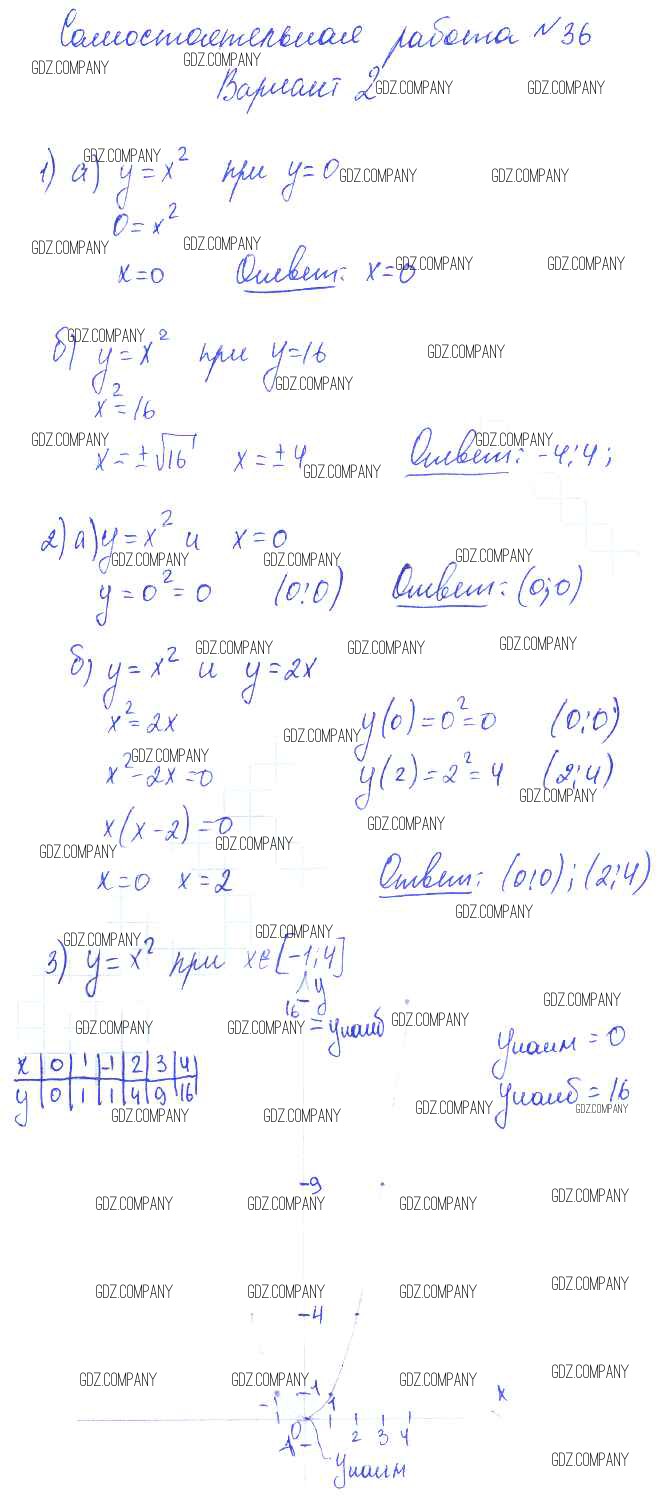 Самостоятельная работа №36
GDZ.COMPANY GDZ.COMPANY
Вариант 2 GDZ.COMPANY GDZ.COMPANY
GDZ.COMPANY
1) а) y = x² при y = 0 GDZ.COMPANY GDZ.COMPANY
0 = x²
GDZ.COMPANY GDZ.COMPANY
x = 0 Ответ: x = 0 GDZ.COMPANY GDZ.COMPANY
GDZ.COMPANY
б) y = x² при y = 16 GDZ.COMPANY
GDZ.COMPANY
x² = 16
GDZ.COMPANY GDZ.COMPANY
x = ±√16 x = ±4 Ответ: -4; 4;
GDZ.COMPANY
2) а) y = x² и x = 0
GDZ.COMPANY GDZ.COMPANY GDZ.COMPANY
y = 0² = 0 (0;0) Ответ: (0;0)
GDZ.COMPANY GDZ.COMPANY GDZ.COMPANY
б) y = x² и y = 2x
x² = 2x y(0) = 0² = 0 (0;0)
GDZ.COMPANY
GDZ.COMPANY
x² - 2x = 0 y(2) = 2² = 4 (2;4)
GDZ.COMPANY
x(x - 2) = 0 GDZ.COMPANY
GDZ.COMPANY GDZ.COMPANY
x = 0 x = 2 Ответ: (0;0); (2;4)
GDZ.COMPANY
GDZ.COMPANY GDZ.COMPANY
3) y = x² при x∈[-1;4]
y
16
GDZ.COMPANY
GDZ.COMPANY GDZ.COMPANY = yнаиб GDZ.COMPANY
yнаим = 0
x 0 1 -1 2 3 4
y 0 1 1 4 9 16
yнаиб = 16
GDZ.COMPANY GDZ.COMPANY GDZ.COMPANY GDZ.COMPANY
9
GDZ.COMPANY GDZ.COMPANY GDZ.COMPANY GDZ.COMPANY
GDZ.COMPANY GDZ.COMPANY GDZ.COMPANY GDZ.COMPANY
4
GDZ.COMPANY GDZ.COMPANY GDZ.COMPANY GDZ.COMPANY
-1 1 1 x
0 2 3 4
yнаим
GDZ.COMPANY